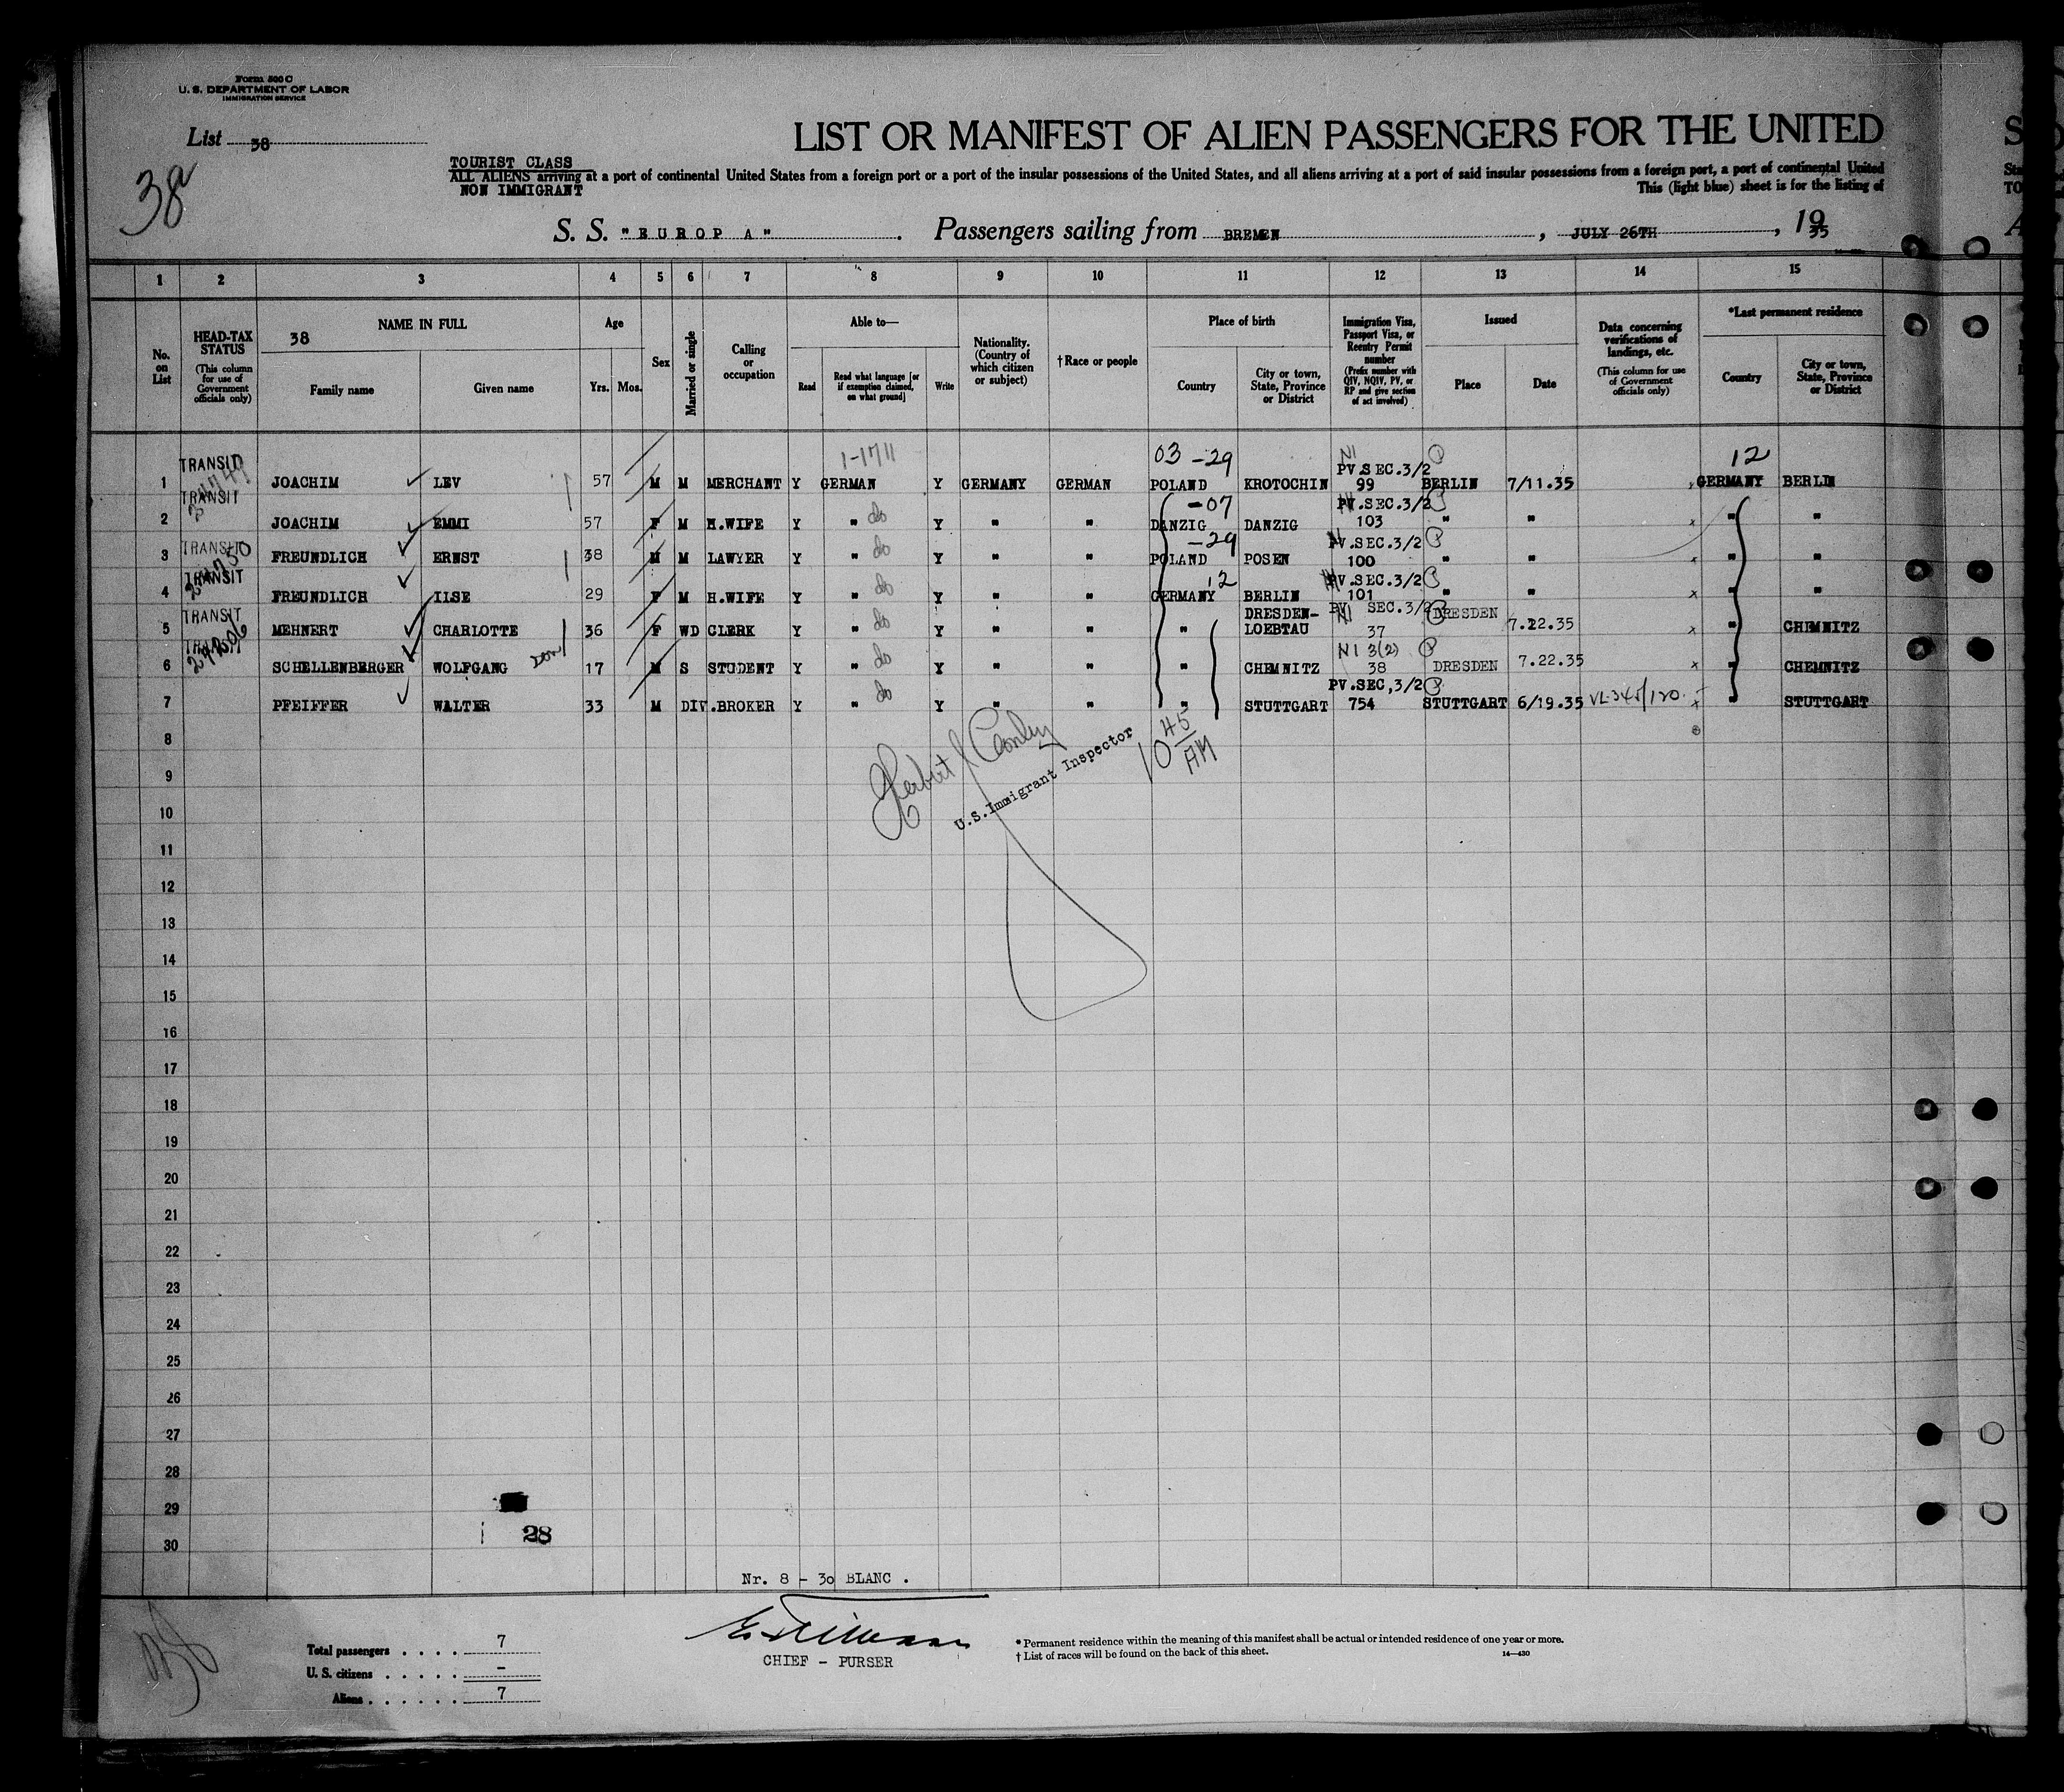 Form 500 C
U. S. DEPARTMENT OF LABOR
IMMIGRATION SERVICE
List 38
38
LIST OR MANIFEST OF ALIEN PASSENGERS FOR THE UNITED
TOURIST CLASS
ALL ALIENS arriving at a port of continental United States from a foreign port or a port of the insular possessions of the United States, and all aliens arriving at a port of said insular possessions from a foreign port, a port of continental United
NON IMMIGRANT
This (light blue) sheet is for the listing of
S. S. "EUROPA". Passengers sailing from BREMEN, JULY 26TH, 1935
1 2 3 4 5 6 7 8 9 10 11 12 13 14 15
No. on List
HEAD-TAX STATUS (This column for use of Government officials only)
38 NAME IN FULL
Family name Given name
Age Yrs. Mos.
Sex
Married or single
Calling or occupation
Able to— Read Read what language [or if exemption claimed, on what ground] Write
Nationality. (Country of which citizen or subject)
† Race or people
Place of birth Country City or town, State, Province or District
Immigration Visa, Passport Visa, or Reentry Permit number (Prefix number with QIV, NQIV, PV, or RP and give section of act involved)
Issued Place Date
Data concerning verifications of landings, etc. (This column for use of Government officials only)
*Last permanent residence Country City or town, State, Province or District
1-1711 03 -29 NI 12
1 TRANSIT JOACHIM LEV 57 M M MERCHANT Y GERMAN Y GERMANY GERMAN POLAND KROTOCHIN PV.SEC.3/2 99 BERLIN 7/11.35 GERMANY BERLIN
-07
2 TRANSIT JOACHIM EMMI 57 F M H.WIFE Y " do Y " " DANZIG DANZIG PV.SEC.3/2 103 " " " "
-29
3 TRANSIT FREUNDLICH ERNST 38 M M LAWYER Y " do Y " " POLAND POSEN PV.SEC.3/2 100 " " " "
12
4 TRANSIT FREUNDLICH ILSE 29 F M H.WIFE Y " do Y " " GERMANY BERLIN PV.SEC.3/2 101 " " " "
5 TRANSIT MEHNERT CHARLOTTE 36 F WD CLERK Y " do Y " " " DRESDEN-LOEBTAU PV SEC.3/2 37 DRESDEN 7.22.35 " CHEMNITZ
6 TRANSIT SCHELLENBERGER WOLFGANG son 17 M S STUDENT Y " do Y " " " CHEMNITZ NI 3(2) 38 DRESDEN 7.22.35 " CHEMNITZ
7 PFEIFFER WALTER 33 M DIV. BROKER Y " do Y " " " STUTTGART PV.SEC,3/2 754 STUTTGART 6/19.35 " STUTTGART
U.S.Immigrant Inspector
10 45 AM
8
9
10
11
12
13
14
15
16
17
18
19
20
21
22
23
24
25
26
27
28
29
28
30
Nr. 8 - 30 BLANC .
CHIEF - PURSER
Total passengers . . . . 7
U. S. citizens . . . . . -
Aliens . . . . . . 7
* Permanent residence within the meaning of this manifest shall be actual or intended residence of one year or more.
† List of races will be found on the back of this sheet.
14—430